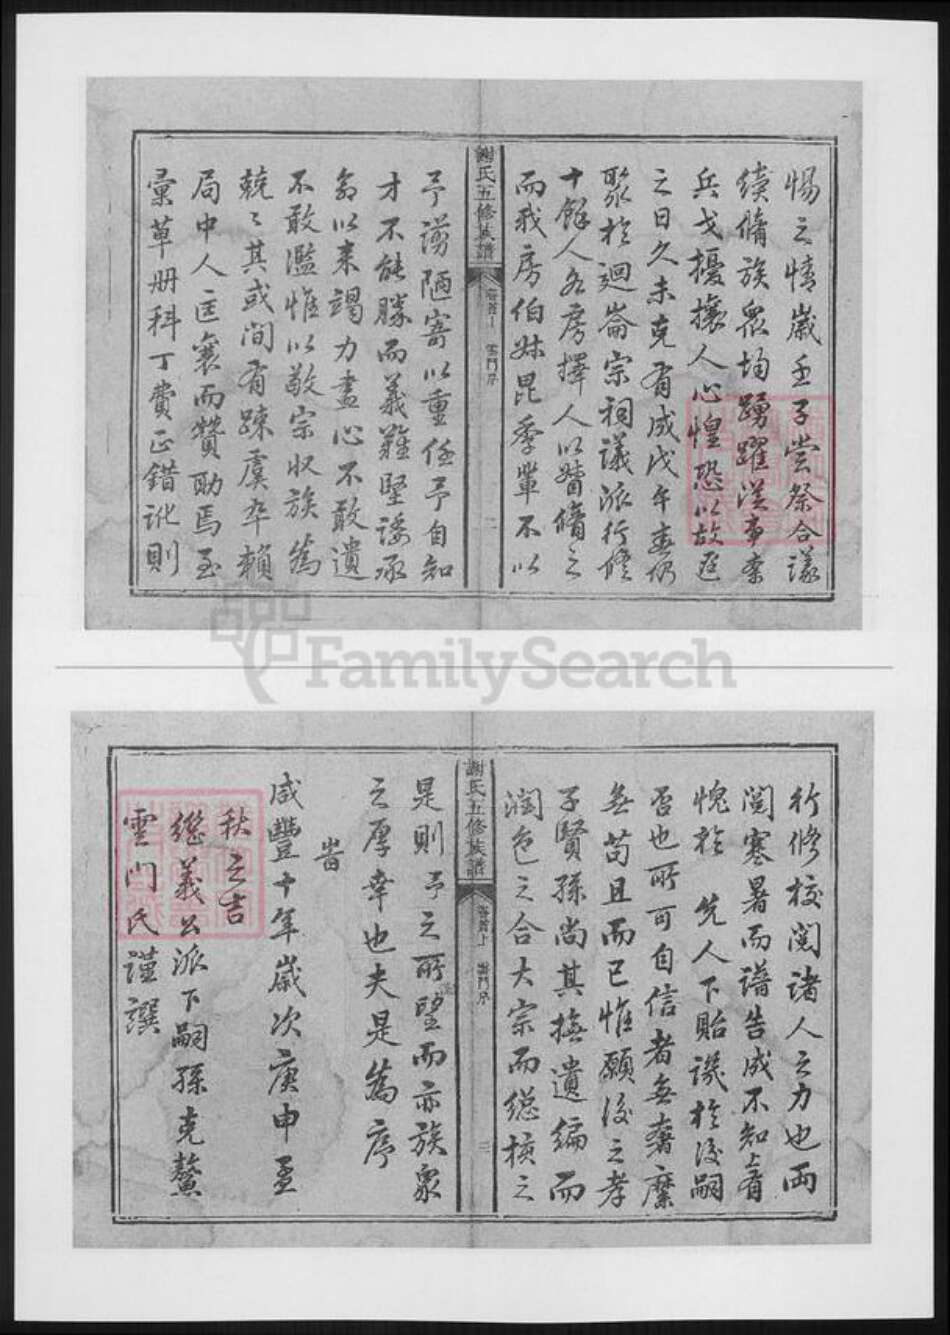 惕之情歲壬子嘗祭合議
續脩族眾均踴躍從事柰
兵戈擾攘人心惶恐以故延
之日久未克有成戊午春仍
聚於迴崙宗祠議派行修
十餘人各房擇人以贊脩之
而我房伯叔昆季輩不以
謝氏五修族譜
卷首上 雲門序
二
予譾陋寄以重任予自知
才不能勝而義難堅諉承
命以來竭力盡心不敢遺
不敢濫惟以敬宗收族為
兢〻其或間有疎虞卒賴
局中人匡襄而贊助焉至
彙草冊科丁費正錯訛則
行修校閱諸人之力也兩
閱寒暑而譜告成不知上有
愧於 先人下貽譏於後嗣
否也所可自信者無奢糜
無苟且而已惟願後之孝
子賢孫尚其撫遺編而
潤色之合大宗而總核之
謝氏五修族譜
卷首上 雲門序
三
是則予之所望而亦族眾
之厚幸也夫是為序
旹
咸豐十年歲次庚申孟
秋之吉
繼義公派下嗣孫克鰲
雲門氏謹譔
FamilySearch